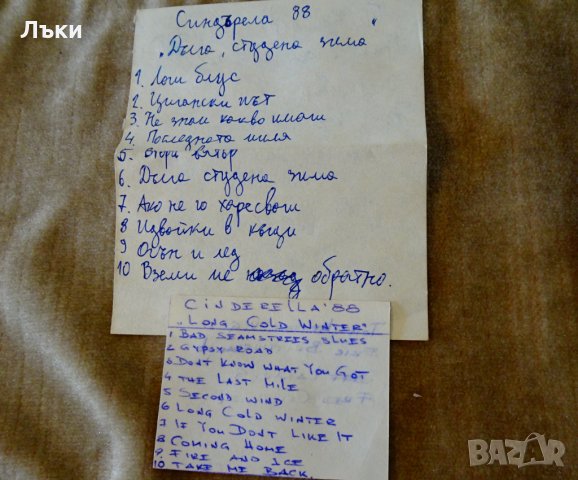 Лъки
Синдърела 88
„Дълга, студена зима"
1. Лош блус
2. Цигански път
3. Не знам какво имаш
4. Последната миля
5. втори вятър
6. Дълга студена зима
7. Ако не го харесваш
8 Извивки в къщи
9 Огън и лед
10 Вземи ме обратно.
CINDERELLA '88
„LONG COLD WINTER"
1 BAD SEAMSTREES BLUES
2 GYPSY ROAD
3 DONT KNOW WHAT YOU GOT
4 THE LAST MILE
5 SECOND WIND
6 LONG COLD WINTER
7 IF YOU DONT LIKE IT
8 COMING HOME
9. FIRE AND ICE
10 TAKE ME BACK.
BAZAR